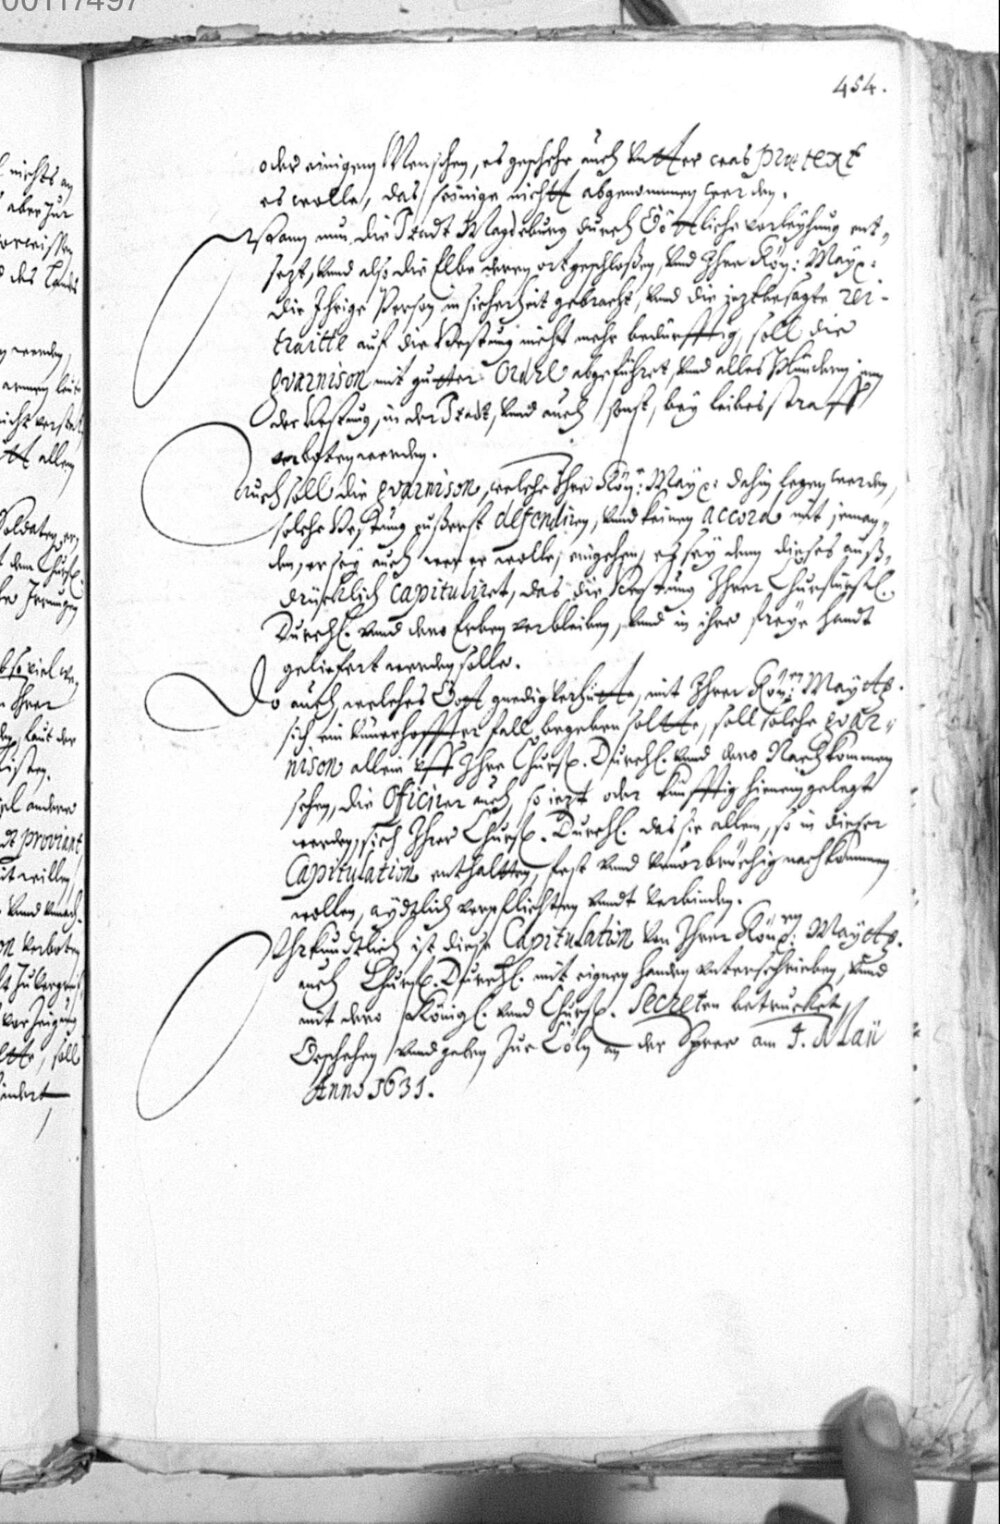 00117497
454.
oder einigem Menschen, es geschehe auch unter was prætext
es wolle, das seinige nicht abgenommen werden.
Wann nun die Stadt Magdeburg durch Göttliche verleyhung ent-
sezt, vnd also die Elbe deren ort geschloßen, vnd Ihre Kön: May:
die Ihrige Person in sicherheit gebracht, vnd die iezt besagte rei-
traitte auf die Vestung nicht mehr bedürfftig, soll die
gvarnison mit guter Ordre abgeführet, vnd alles Plündern inn
der Vestung, in der Stadt, vnd auch sonst, bey leibes straff
verboten werden.
Auch soll die gvarnison, welche Ihre Kön: May: dahin legen werden,
solche Vestung eußerst defendiren, vnd keinen accord mit jeman-
den, er sey auch wer er wolle, eingehen, es sey denn dieses auß-
drücklich capituliret, das die Vestung Ihrer Churfürstl.
Durchl. vnnd dero Erben verbleiben, vnd in ihre freye handt
geliefert werden solle.
Do auch, welches Gott gnedig verhüte, mit Ihrer Kön: Maytt.
sich ein unverhoffter fall begeben solte, soll solche gvar-
nison allein vff Ihre Churf. Durchl. vnnd dero Nachkommen
sehen, die Officirer auch, so iezt oder künfftig hienein gelegt
werden, sich Ihrer Churf. Durchl. das sie allem, so in dieser
Capitulation enthalten, fest vnnd unverbrüchig nachkommen
wollen, aydtlich verpflichten vnndt verbinden.
Uhrkundtlich ist diese Capitulation von Ihrer Kön: Maytt.
auch Churf. Durchl. mit eignen handen unterschrieben, vnnd
mit dero Königl. vnnd Churf. Secreten betrucket.
Geschehen vnnd geben zue Cöln an der Spree am 4. Maii
Anno 1631.
nichts an
aber zur
des Landes
werden,
armen leute
allem
Soldaten
so viel
laut der
andere
proviant
willen
vnnd
verboten
soll
hindert